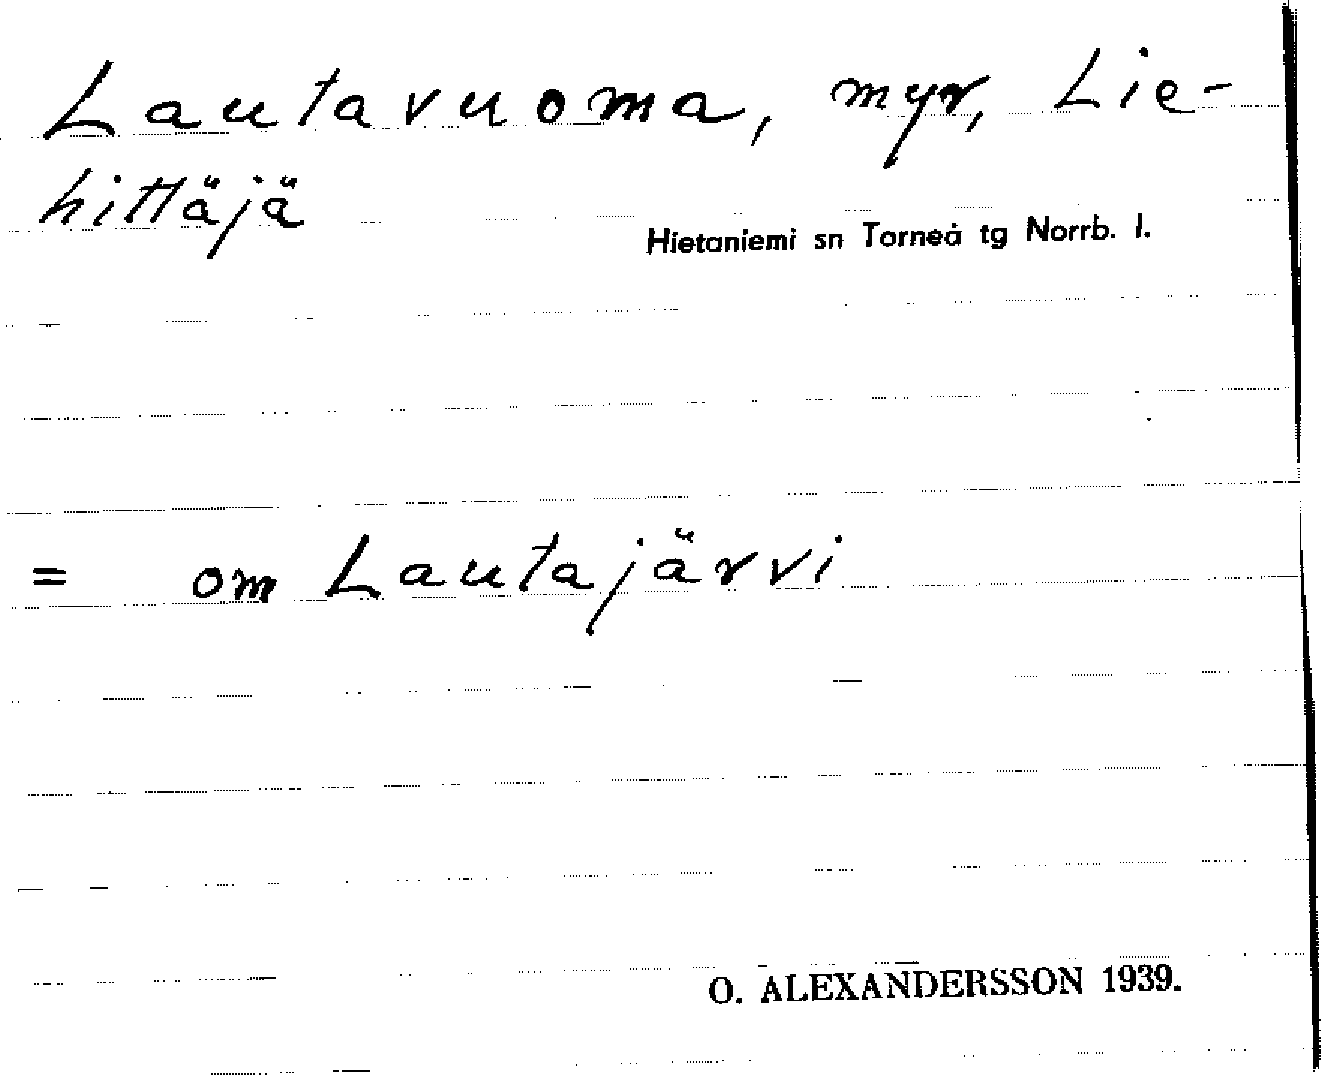 Lautavuoma, myr, Lie-
hittäjä
Hietaniemi sn Torneå tg Norrb. l.
= om Lautajärvi
O. ALEXANDERSSON 1939.